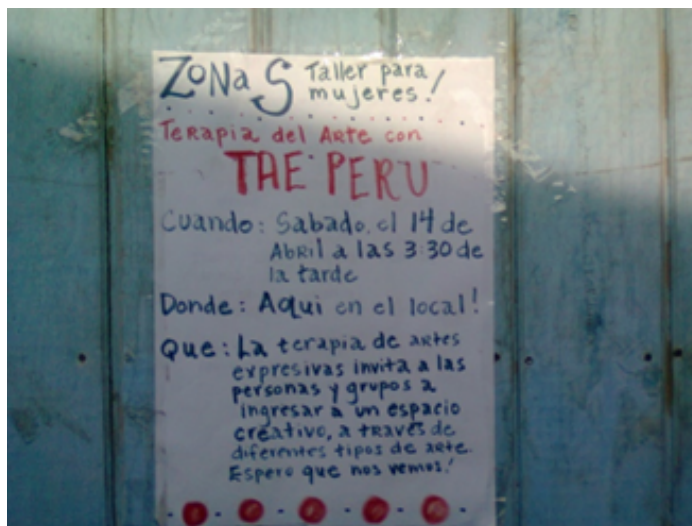 ZONa S Taller para
mujeres!
Terapia del Arte con
TAE PERU
Cuando: Sabado, el 14 de
Abril a las 3:30 de
la tarde
Donde: Aqui en el local!
Que: La terapia de artes
expresivas invita a las
personas y grupos a
ingresar a un espacio
creativo, a través de
diferentes tipos de arte.
Espero que nos vemos!